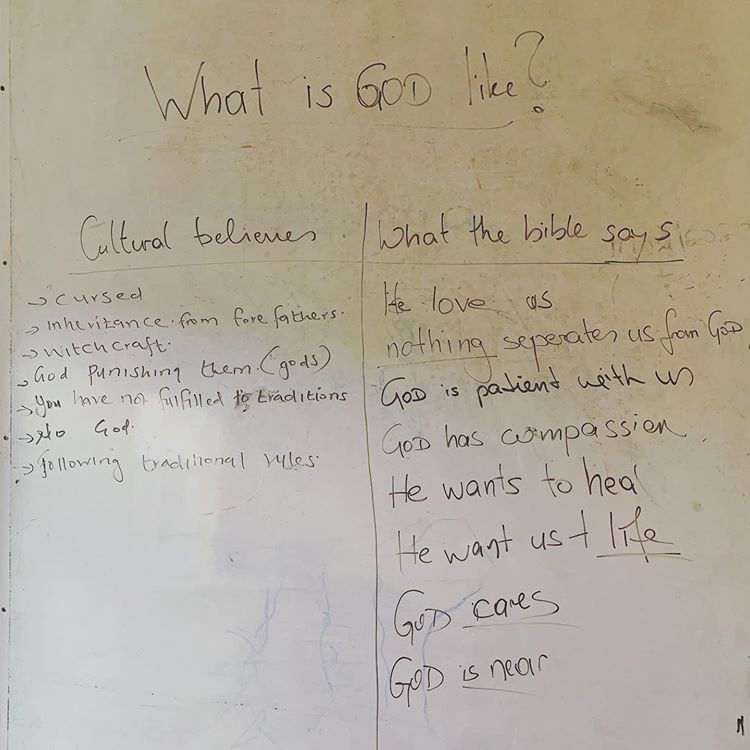 What is GOD like?
Cultural believes
→ cursed
→ inheritance from fore fathers.
→ witchcraft.
→ God punishing them. (gods)
→ You have not fulfilled to traditions
→ No God.
→ following traditional rules.
What the bible says
He love us
nothing seperates us from GOD
GOD is patient with us
GOD has compassion
He wants to heal
He want us + life
GOD cares
GOD is near